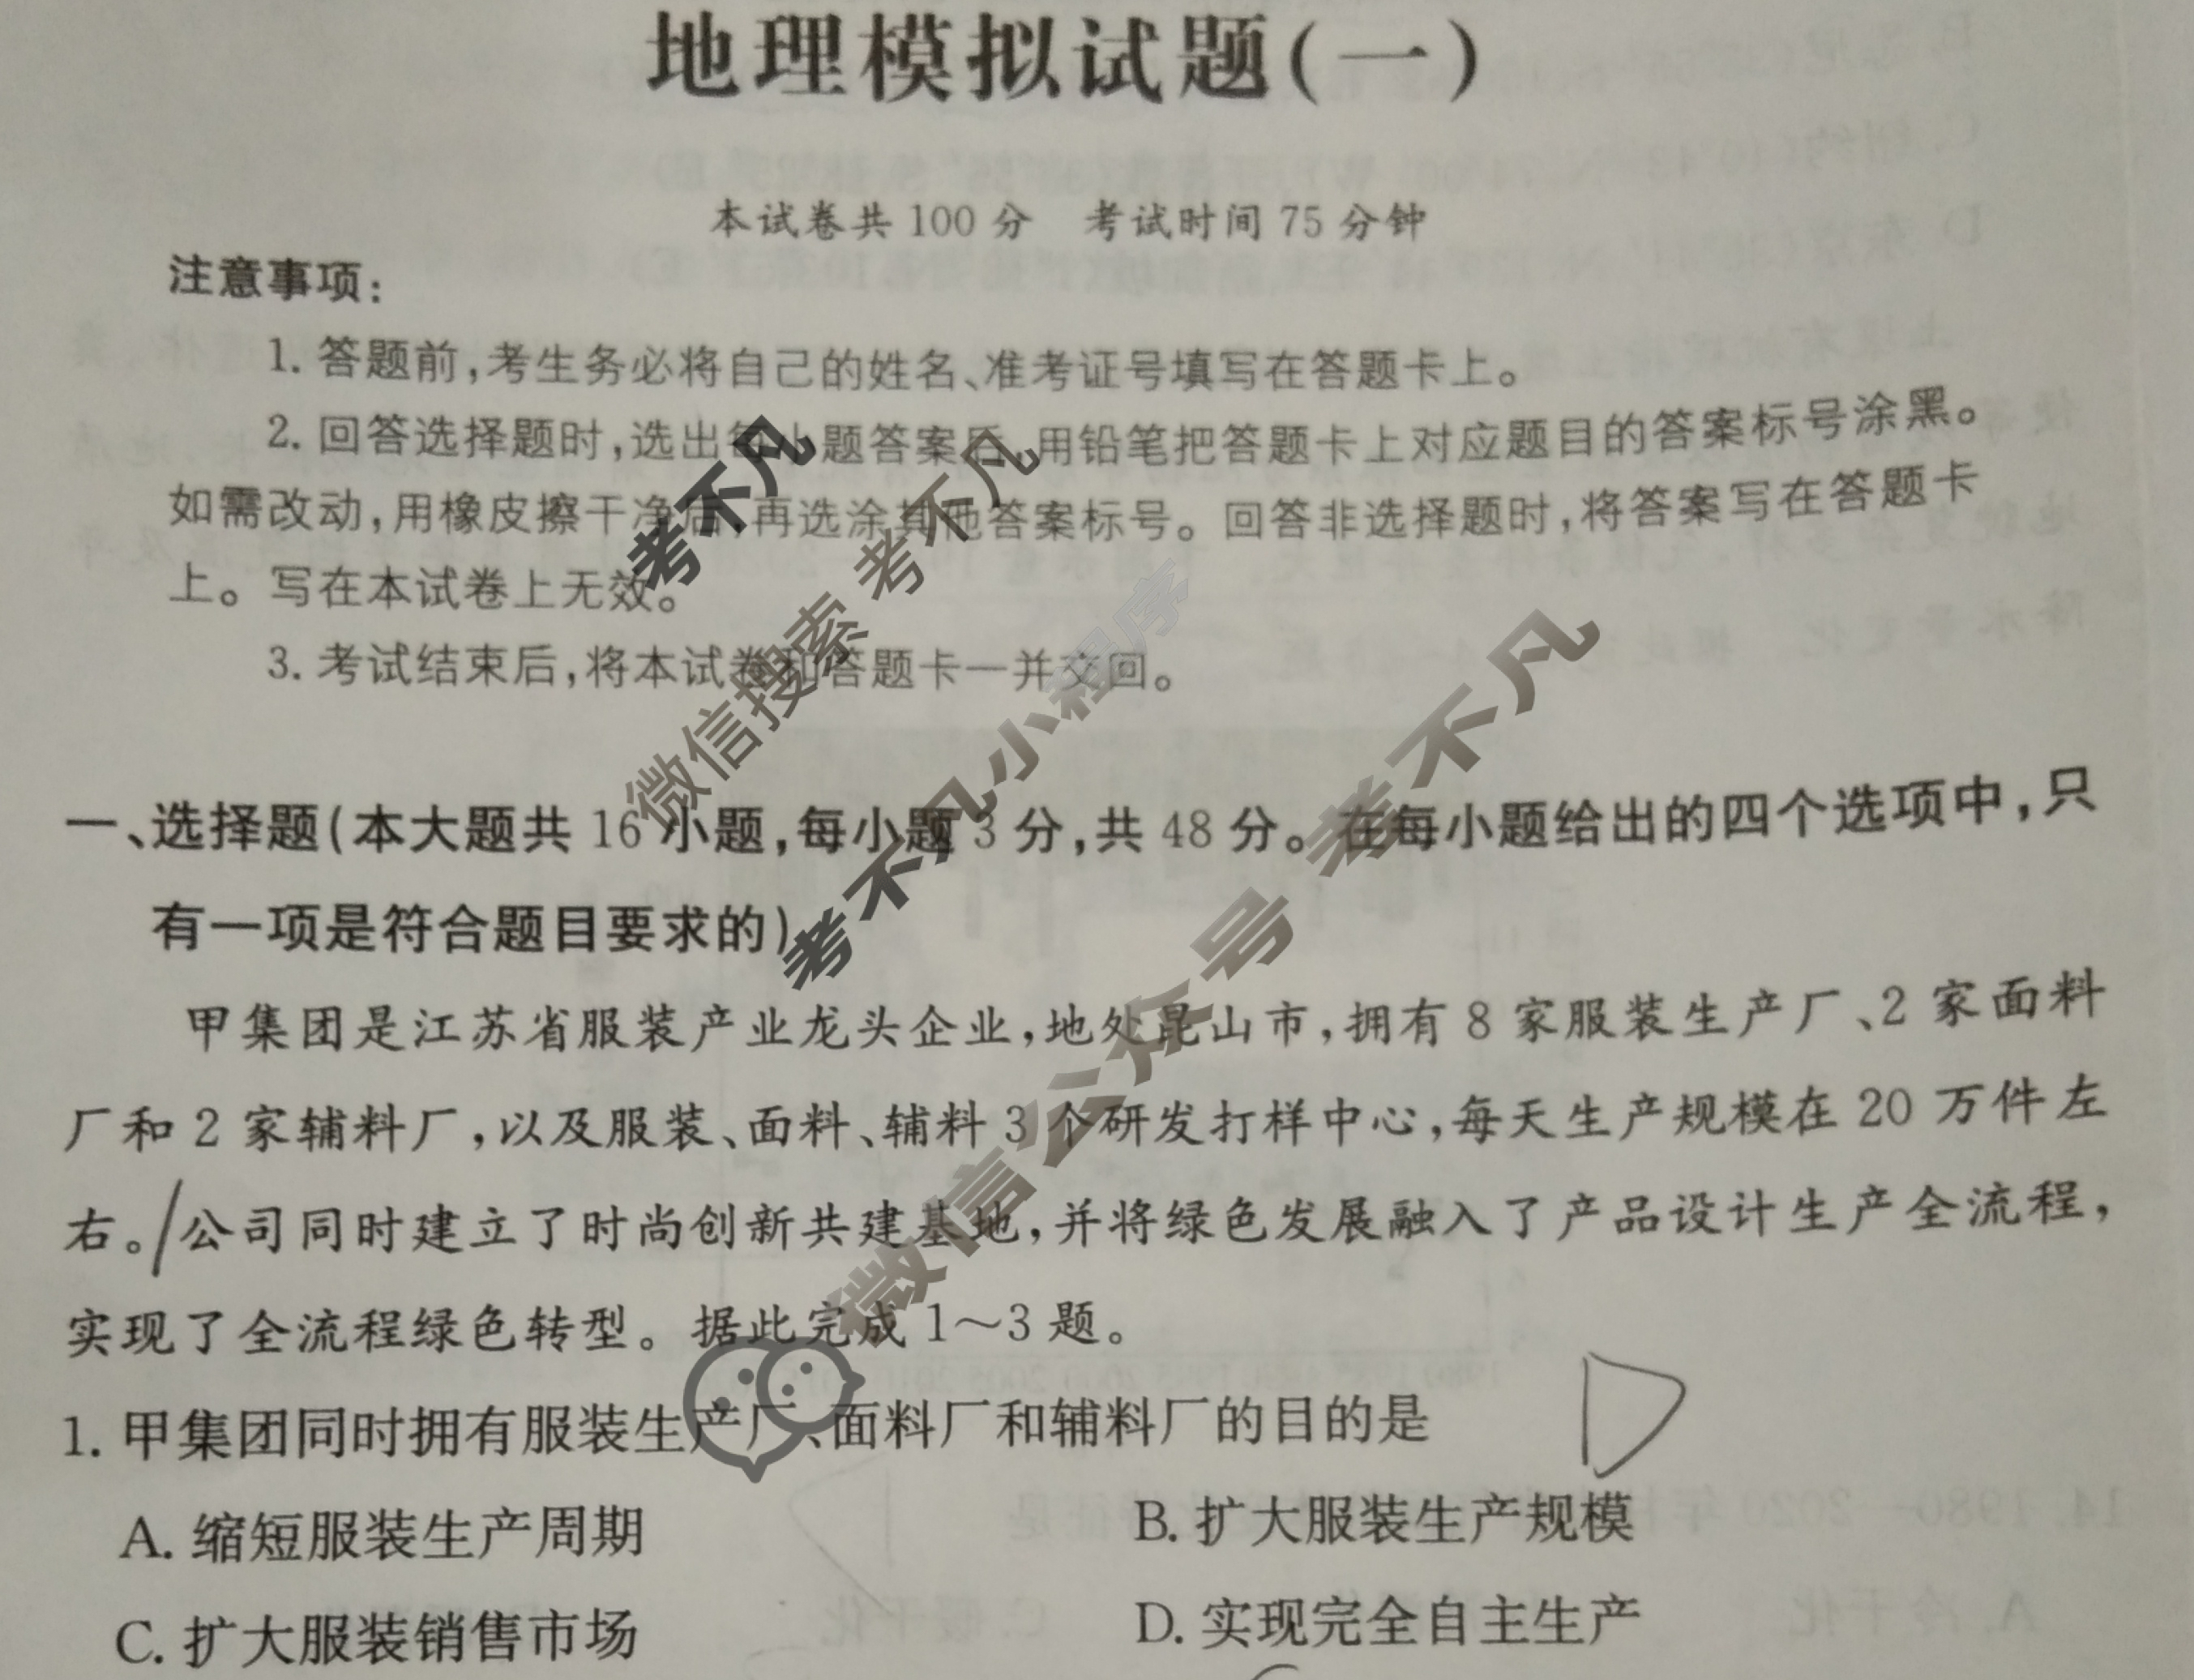 地理模拟试题(一)
本试卷共 100 分 考试时间 75 分钟
注意事项:
1. 答题前,考生务必将自己的姓名、准考证号填写在答题卡上。
2. 回答选择题时,选出每小题答案后,用铅笔把答题卡上对应题目的答案标号涂黑。
如需改动,用橡皮擦干净后,再选涂其他答案标号。回答非选择题时,将答案写在答题卡
上。写在本试卷上无效。
3. 考试结束后,将本试卷和答题卡一并交回。
考不凡
微信搜索 考不凡
考不凡小程序
微信公众号 考不凡
一、选择题(本大题共 16 小题,每小题 3 分,共 48 分。在每小题给出的四个选项中,只
有一项是符合题目要求的)
甲集团是江苏省服装产业龙头企业,地处昆山市,拥有 8 家服装生产厂、2 家面料
厂和 2 家辅料厂,以及服装、面料、辅料 3 个研发打样中心,每天生产规模在 20 万件左
右。公司同时建立了时尚创新共建基地,并将绿色发展融入了产品设计生产全流程,
实现了全流程绿色转型。据此完成 1～3 题。
1. 甲集团同时拥有服装生产厂、面料厂和辅料厂的目的是 D
A. 缩短服装生产周期 B. 扩大服装生产规模
C. 扩大服装销售市场 D. 实现完全自主生产